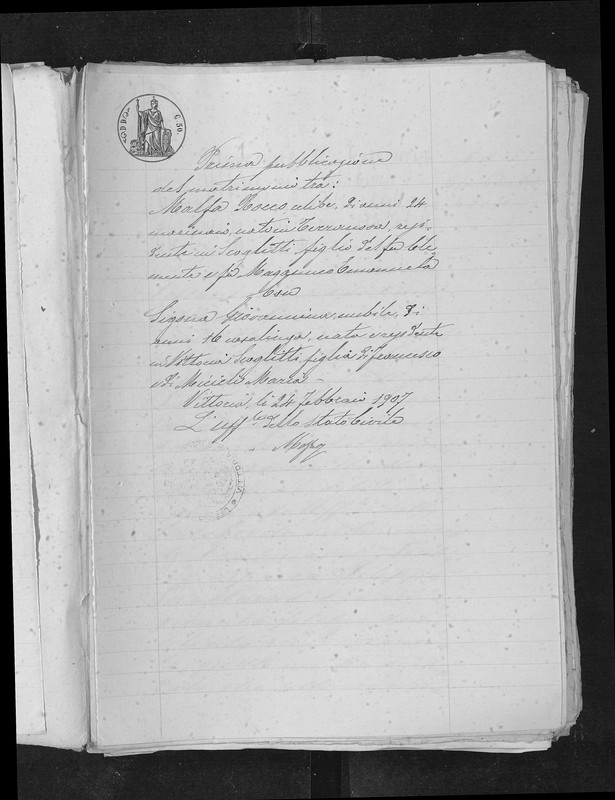 C. 50.
Prima pubblicazione
del matrimonio tra:
Malfa Rocco celibe, di anni 24
marinaio, nato in Terranova, resi-
dente in Scoglitti figlio del fu Cle
mente e fu Emanuela
Con
Sigona Giovannina, nubile, di
anni 16 casalinga, nata e residente
in Vittoria Scoglitti, figlia di Francesco
e di Miceli Maria -
Vittoria, li 24 Febbraio 1907
L'uff.le dello Stato Civile